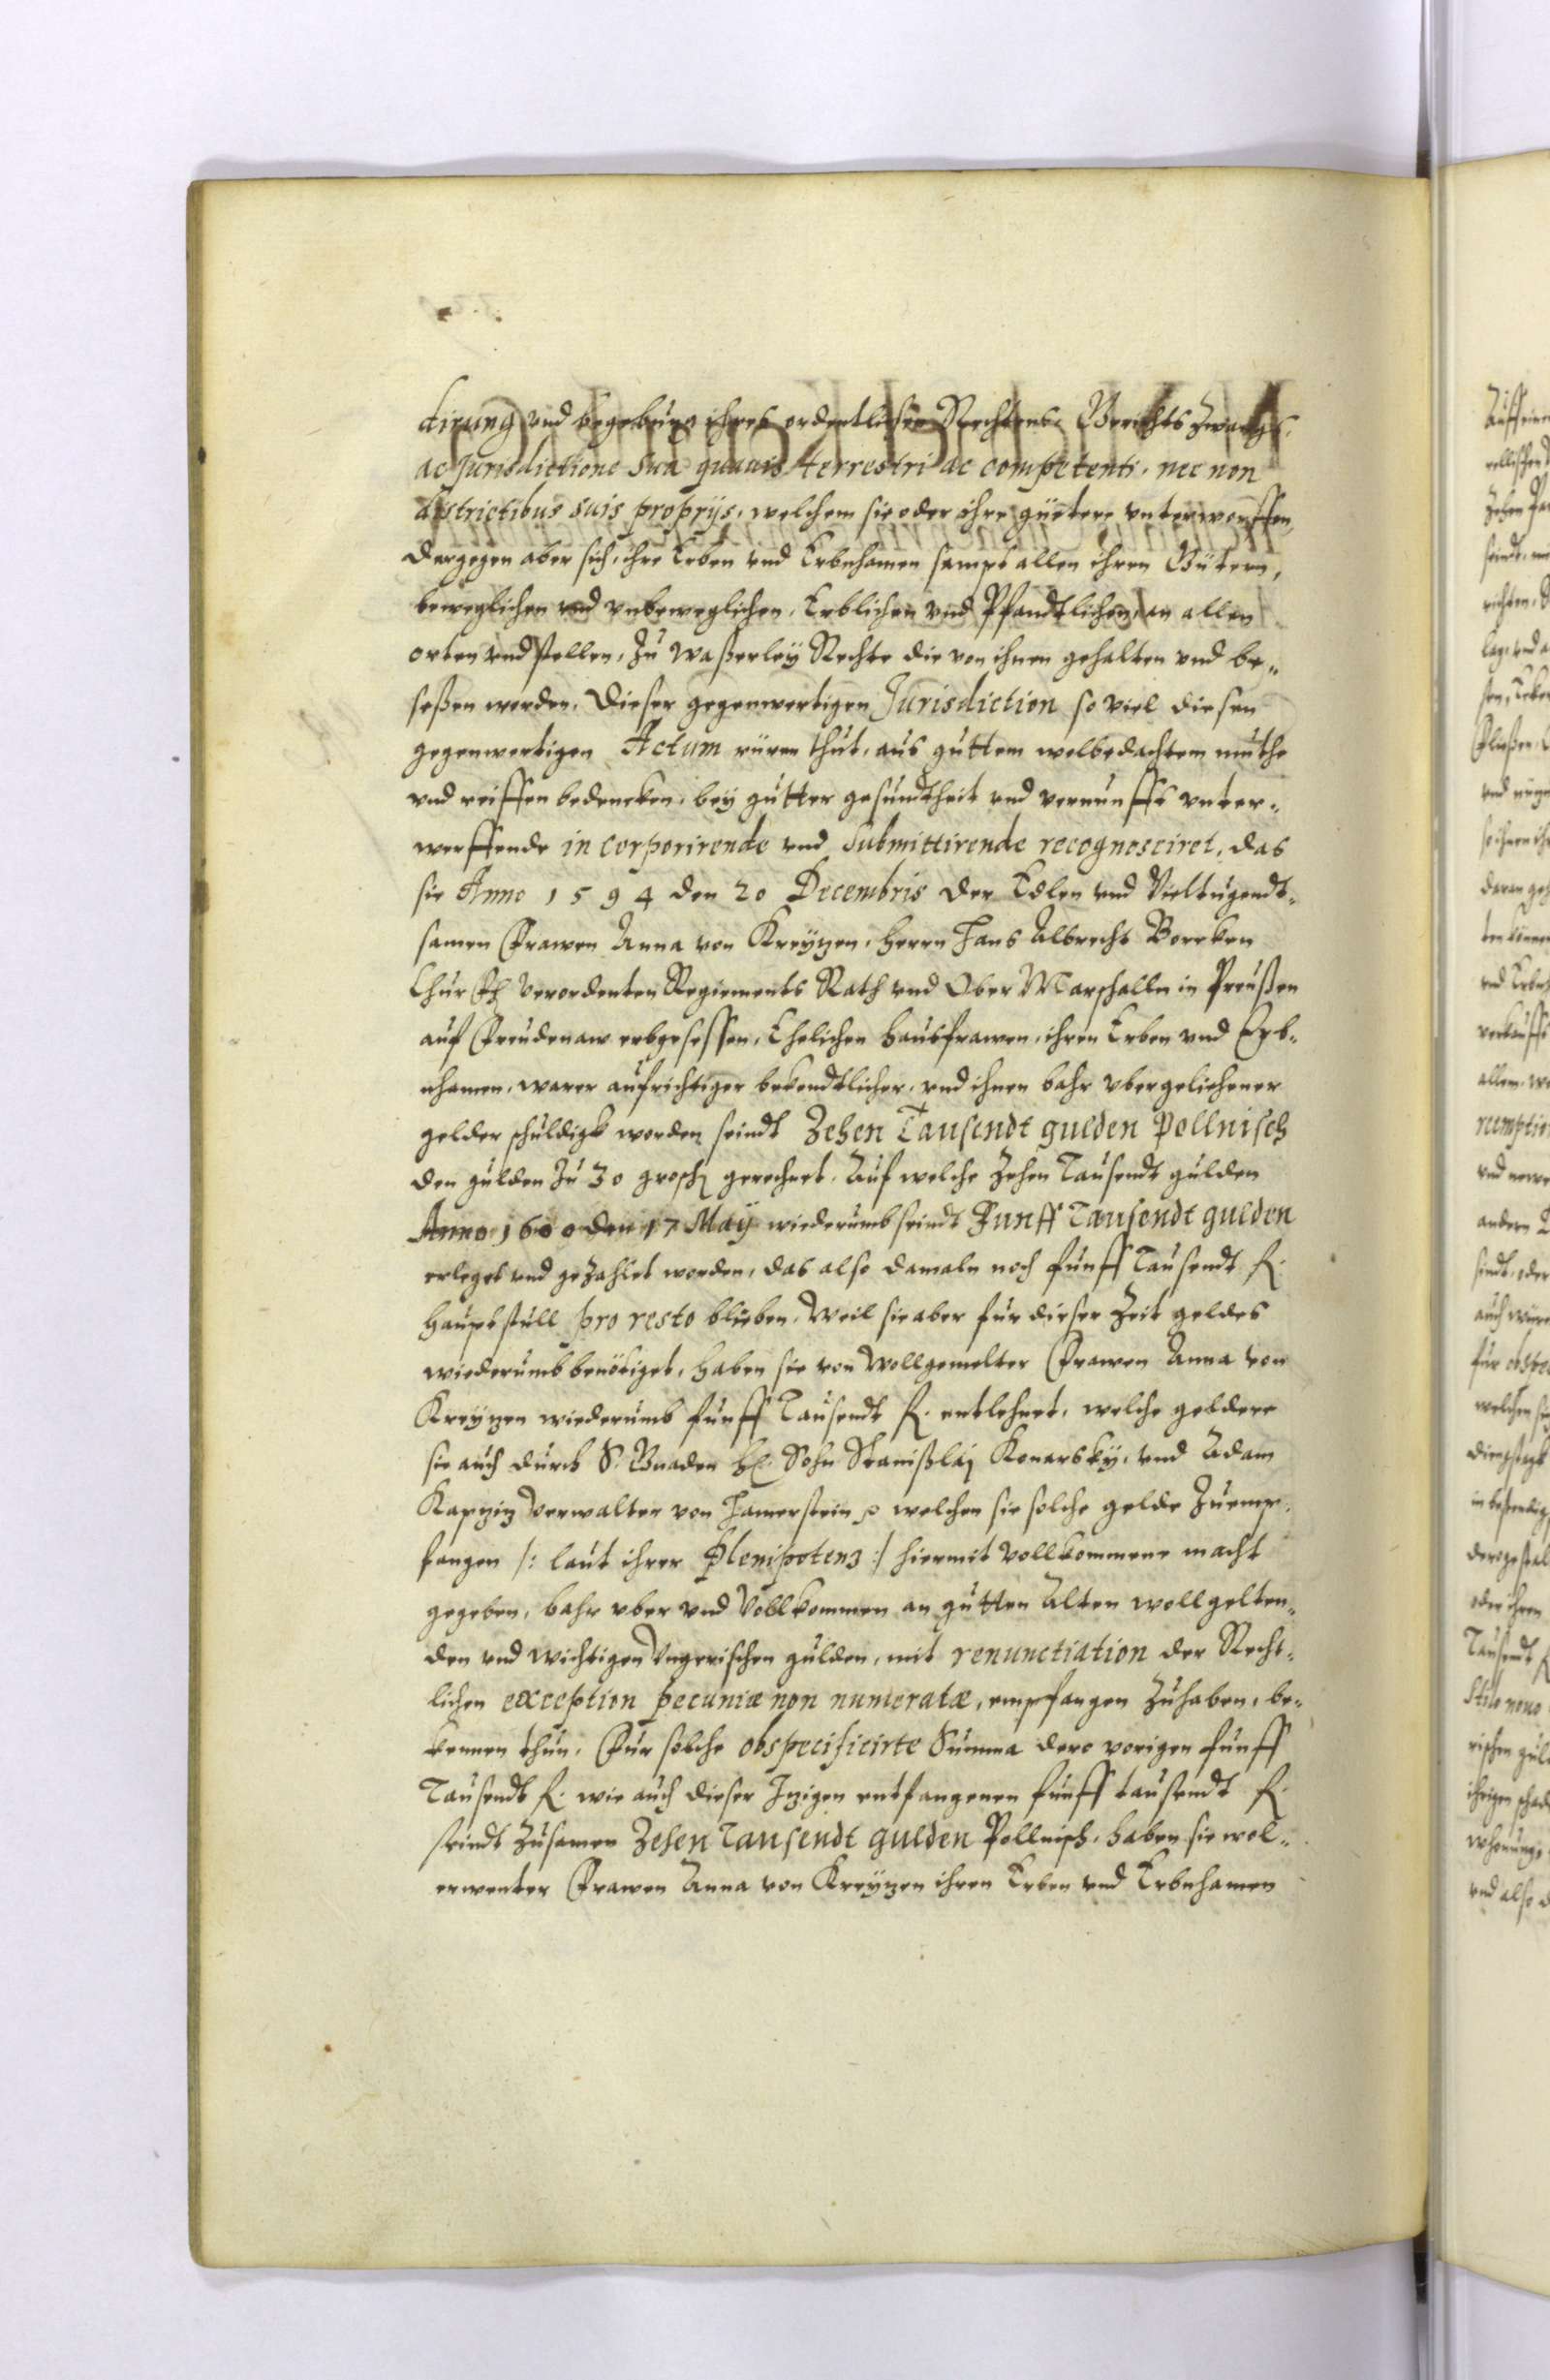 tirung vnd begebung ihres ordentlichen Rechtens Gerichts Zwangs.
ac Jurisdictione sua quauis terrestri ac competenti, nec non
districtibus suis proprijs, welchem sie oder ihre güetere vnterworffen,
dargegen aber sich, ihre Erben vnd Erbnhamen sampt allen ihren Gütern,
beweglichen vnd vnbeweglichen, Erblichen vnd Pfandtlichen, an allen
orten vnd stellen, Zu waßerley Rechte die von ihnen gehalten vnd be„
seßen werden, Dieser gegenwertigen Jurisdiction so viel diesen
gegenwertigen Actum rüren thut, aus guttem wolbedachtem muthe
vnd reiffen bedencken, bey gutter gesundtheit vnd vernunfft vnter„
werffende in corporirende vnd submittirende recognosciret, das
sie Anno 1594 den 20 Decembris der Edlen vnd Vieltugendt„
samen Frawen Anna von Kreytzen, Herrn Hans Albrecht Borcken
Chur Fh verordenten Regiements Rath vnd Ober Marschalln in Preußen
auf Freudenaw erbgesessen, Ehelichen Hausfrawen, ihren Erben vnd Erb„
nhamen, warer aufrichtiger bekendtlicher, vnd ihnen bahr vbergeliehener
gelder schuldigk worden seindt Zehen Tausendt gulden Pollnisch
den gulden Zu 30 grosch gerechnet, Auf welche Zehen Tausendt gulden
Anno 1600 den 17 Maij wiederumb seindt Funff Tausendt gulden
erleget vnd geZahlet worden, das also damaln noch funff Tausendt f.
Hauptstull pro resto blieben, Weil sie aber fur dieser Zeit geldes
wiederumb benötiget, haben sie von Wollgemelter Frawen Anna von
Kreytzen wiederumb funff Tausendt f. entlehnet, welche geldere
sie auch durch S. Gnaden H. Sohn Stanißlaj Konarsky, vnd Adam
Verwalter von Hamerstein welchen sie solche gelde Zuemp„
fangen /: laut ihrer Plenipotenz :/ hiermit vollkommene macht
gegeben, bahr vber vnd Vollkommen an gutten Alten wollgelten„
den vnd wichtigen Vngerischen gulden, mit renunctiation der Recht„
lichen exception pecuniæ non numeratæ, empfangen Zuhaben, be„
kennen thun, Fur solche obspecificirte Summa dero vorigen funff
Tausendt f. wie auch dieser Itzigen entfangenen funff tausendt f.
seindt Zusamen Zehen Tausendt gulden Pollnisch, haben sie wol„
erwenter Frawen Anna von Kreytzen ihren Erben vnd Erbnhamen